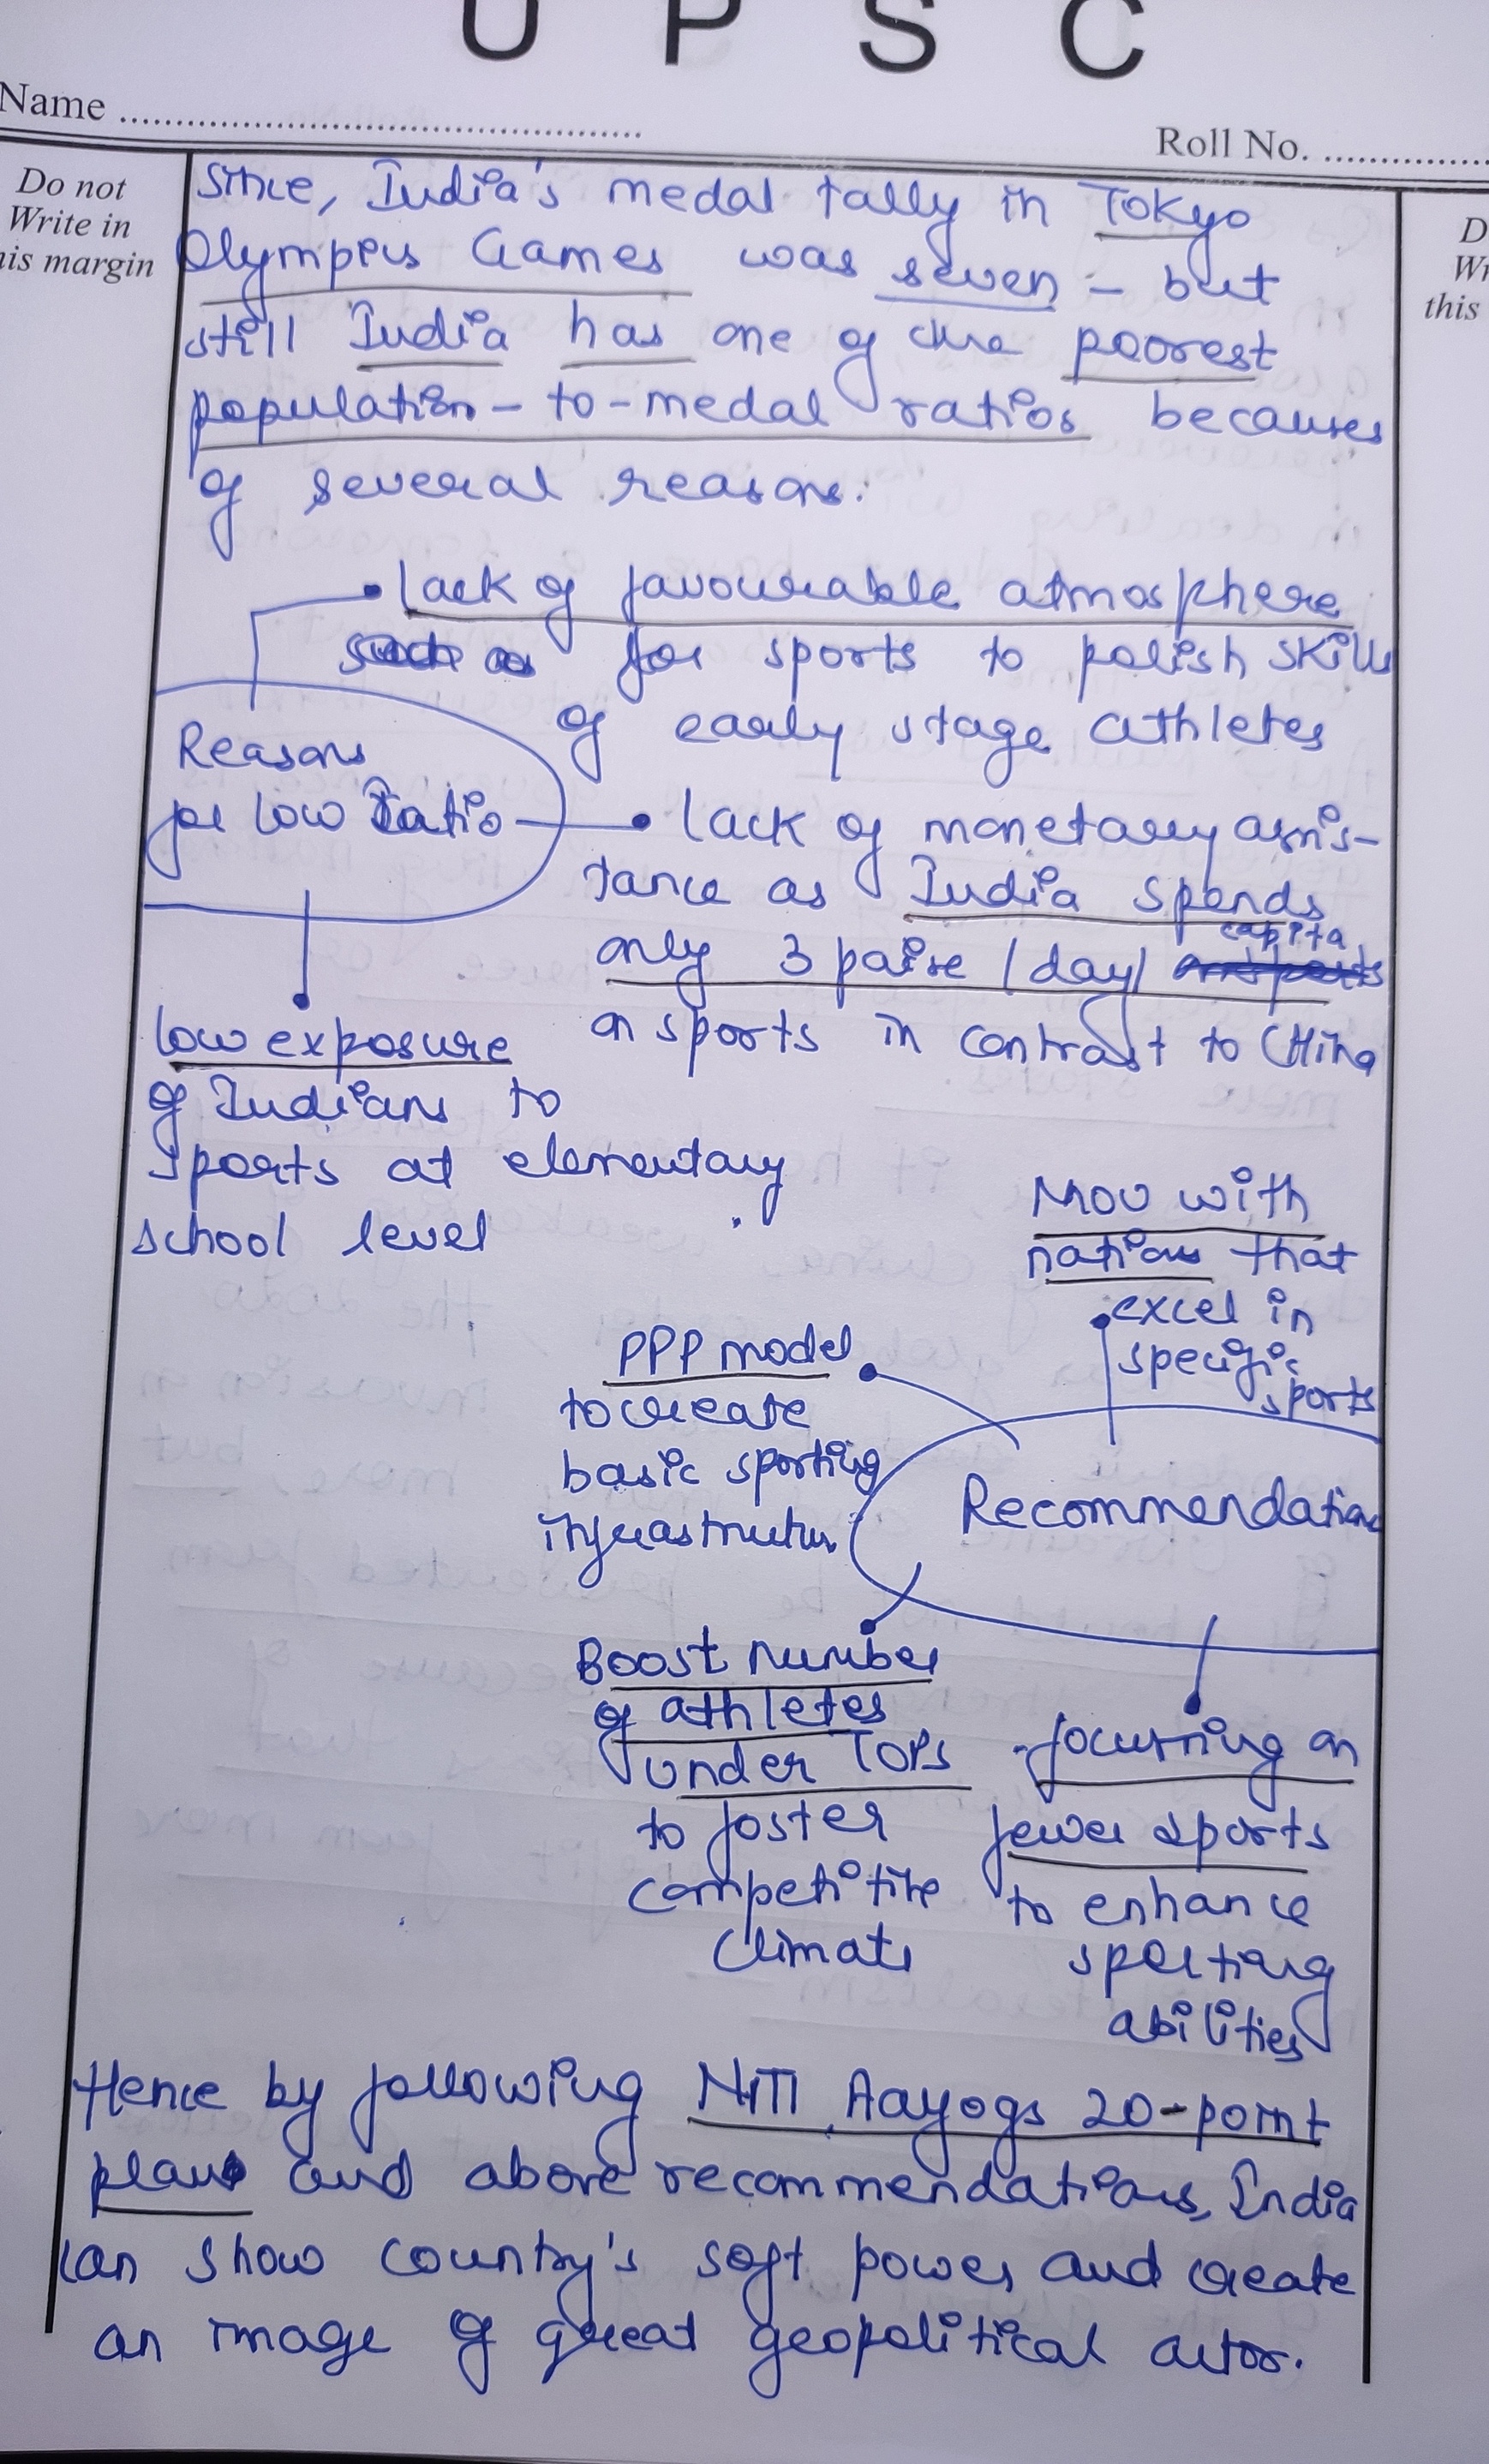 U P S C
Name
Roll No.
Do not
Write in
his margin
D
Wr
this
Since, India's medal tally in Tokyo
Olympics Games was seven - but
still India has one of the poorest
population-to-medal ratios because
of several reasons.
• lack of favourable atmosphere
for sports to polish skills
of early stage athletes
Reasons
for low ratio
• lack of monetary assis-
tance as India spends
only 3 paise /day/ capita
on sports in contrast to China
low exposure
of Indians to
sports at elementary
school level
MOU with
nations that
excel in
specific
sports
PPP model
to create
basic sporting
infrastructure
Recommendations
Boost number
of athletes
under TOPS
to foster
competitive
climate
focussing on
fewer sports
to enhance
sporting
abilities
Hence by following NITI Aayogs 20-point
plan and above recommendations, India
can show country's soft power and create
an image of great geopolitical actor.